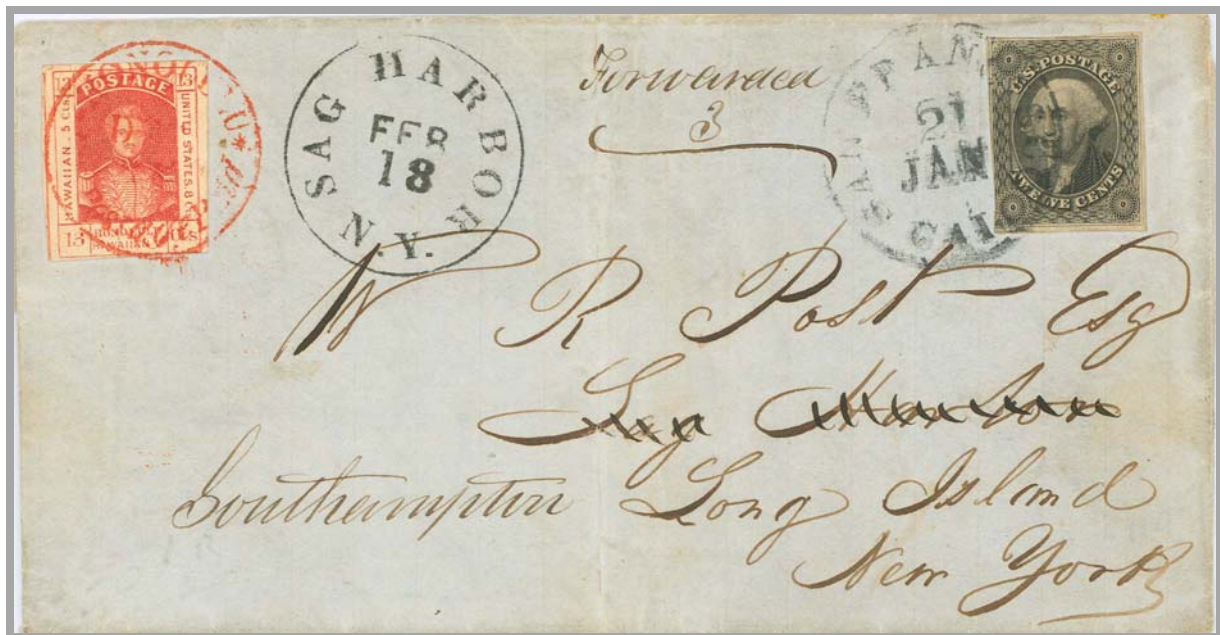 HONOLULU * 
13 POSTAGE 13
HAWAIIAN . 5 Cts.
UNITED STATES. 8
13 CTS
SAG HARBOR
FEB
18
N.Y.
Forwarded
3
SAN FRAN
21
JAN
CAL
U.S. POSTAGE
TWELVE CENTS
W R Post Esq
Sag Harbor
Southampton Long Island
New York